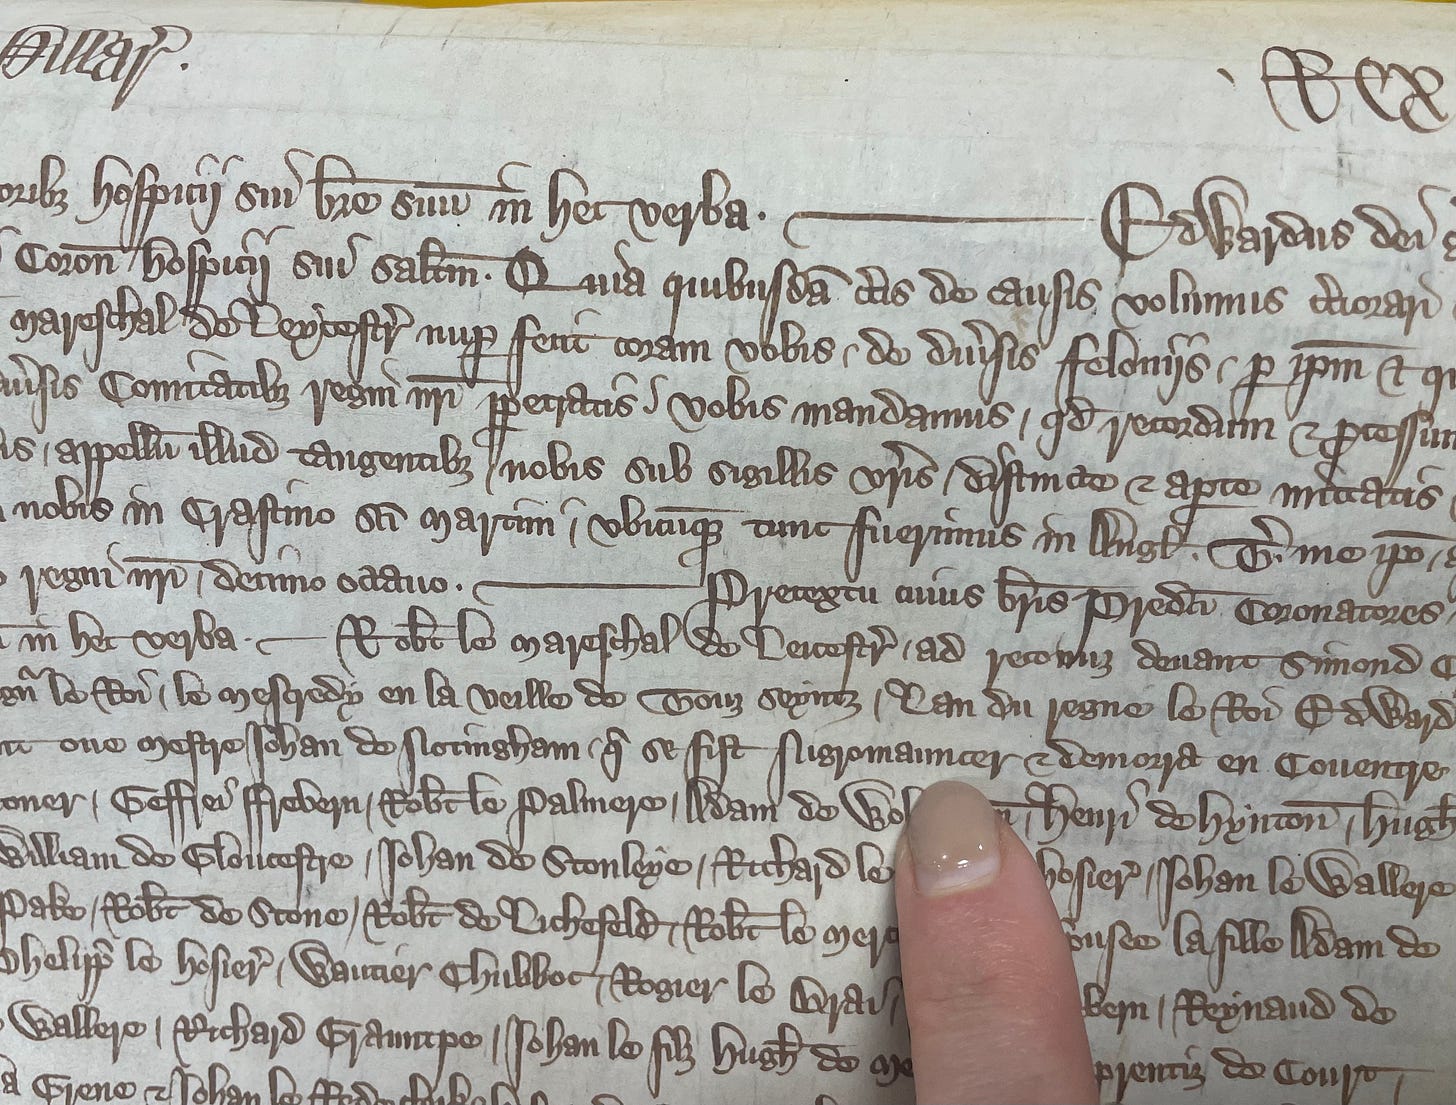 Sillar̉. Rex
oribȝ hospicij sui br̄e suū in hec verba. Edwardus dei
Coron̄ hospicij sui salt̄m. Quia quibusdā c̉tis de causis volumus c̉ciorari
mareschal de Leycestr̉ nup̱ fecit coram vobis, de diủsis felonijs, p̱ ip̄m & q
uủsis Comitatibȝ regni nr̄i pp̱etratis, vobis mandamus, qd̄ recordum & p̱cessum
is, appellū illud tangentibȝ, nobis sub sigillis vr̄is, distincte & ap̱te mittatis
nobis in Crastino sc̄i Martini, vbicūq̨ tunc fuerimus in Angł. T̉. me ip̄o,
regni nr̄i, decimo octauo. Pretextu cuius br̄is Predc̄i Coronatores
in hec verba. Rob̄t le mareschal de Leicestr̉, ad reconuz deuant Simond
gn̄ le Roi, le mescredy en la veille de Touz seyntz, Lan du regne le Roi Edward
nt oue mestre Johan de Notingham, q̉ se fist Nigromauncer & demorra en Couentre
coner, Geffrei ffrebern, Rob̄t le Palmere, Adam de n̄, Henri de Hynton̄, Hugh̄
William de Gloucestre, Johan de Stonleye, Richard le hosier̉, Johan le Wallere
Pake, Rob̄t de Stone, Rob̄t de Lichefeld, Rob̄t le merc ousee la fille Adam de
Phelipp̉ le hosier̉, Wautier Chubbot, Rogier le Brai bern, Reynaud de
Wallere, Richard Grauntpe, Johan le filz Hugh̄ de me prentiz de Court,
Grene & Johan le